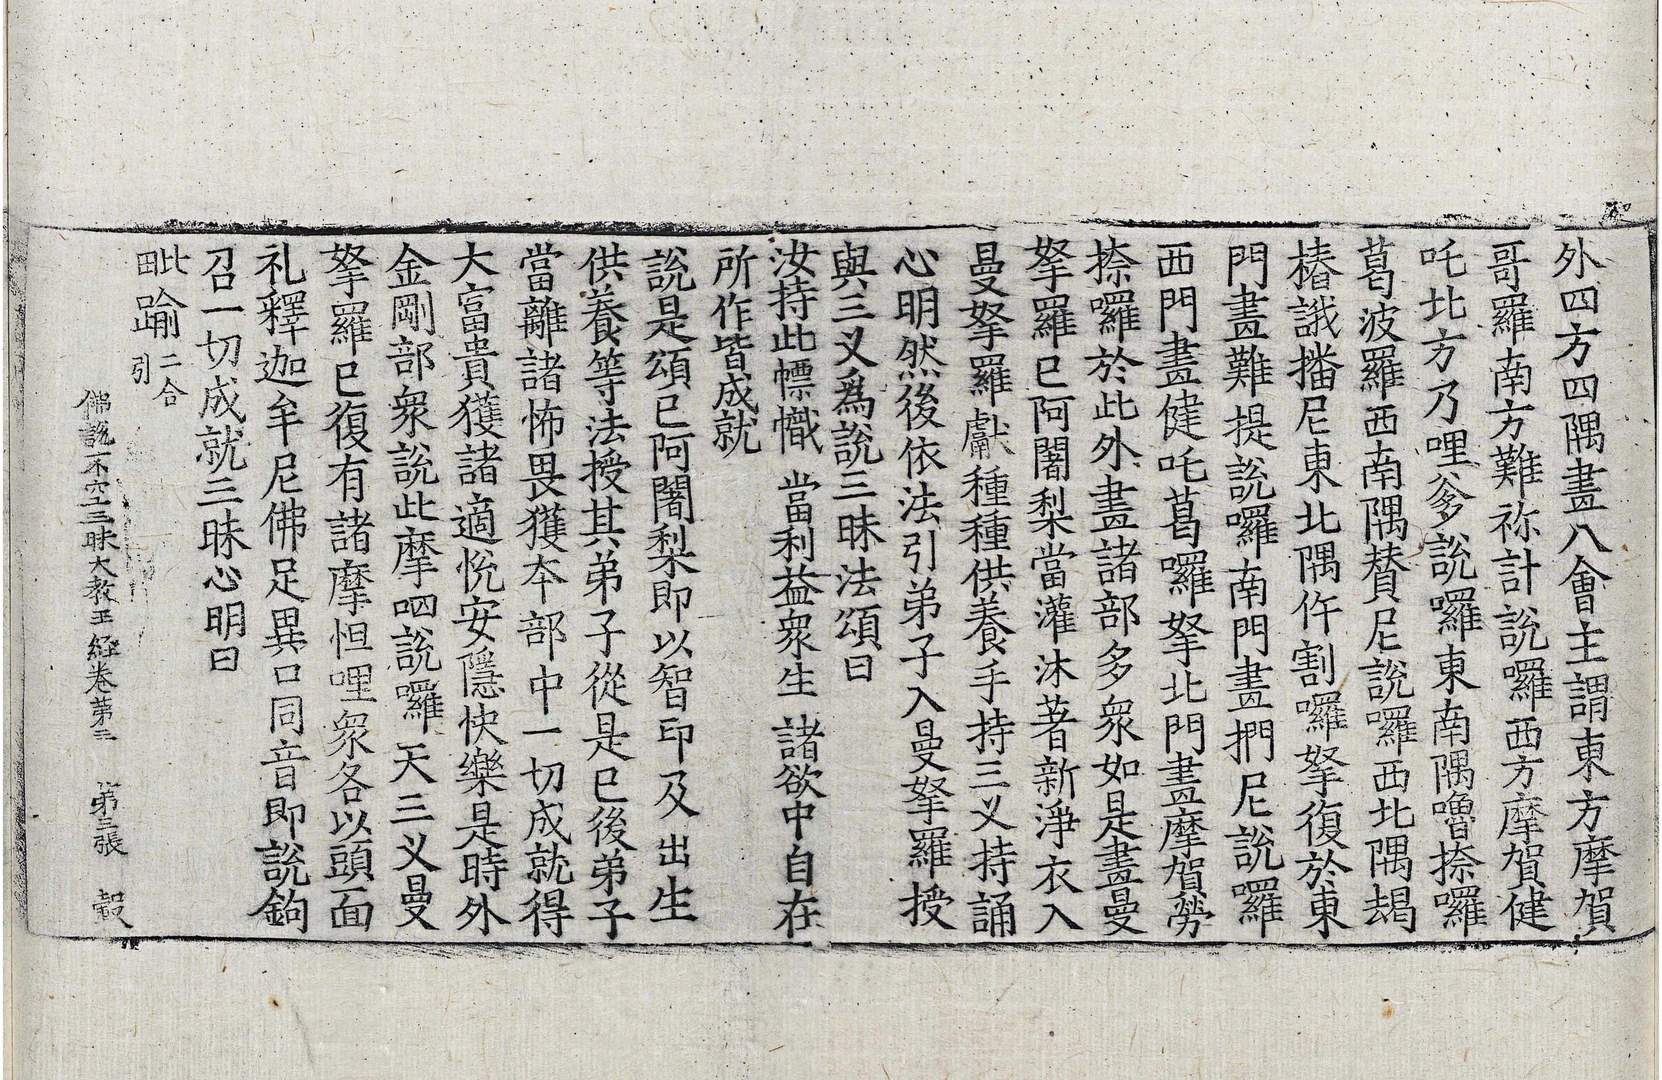 外四方四隅畫八會主謂東方摩賀
哥羅南方難祢計說囉西方摩賀健
吒北方乃哩爹說囉東南隅嚕捺囉
葛波羅西南隅賛尼說囉西北隅朅
樁誐播尼東北隅仵割囉拏復於東
門畫難提說囉南門畫捫尼說囉
西門畫健吒葛囉拏北門畫摩賀勞
捺囉於此外畫諸部多衆如是畫曼
拏羅已阿闍梨當灌沐著新淨衣入
曼拏羅獻種種供養手持三叉持誦
心明然後依法引弟子入曼拏羅授
與三叉爲說三昧法頌曰
汝持此幖幟 當利益衆生 諸欲中自在
所作皆成就
說是頌已阿闍梨即以智印及出生
供養等法授其弟子從是已後弟子
當離諸怖畏獲本部中一切成就得
大富貴獲諸適悅安隱快樂是時外
金剛部衆說此摩呬說囉天三叉曼
拏羅已復有諸摩怛哩衆各以頭面
礼釋迦牟尼佛足異口同音即說鉤
召一切成就三昧心明曰
毗踰二合引
佛說不空三昧大教王經卷第三 第三張 縠